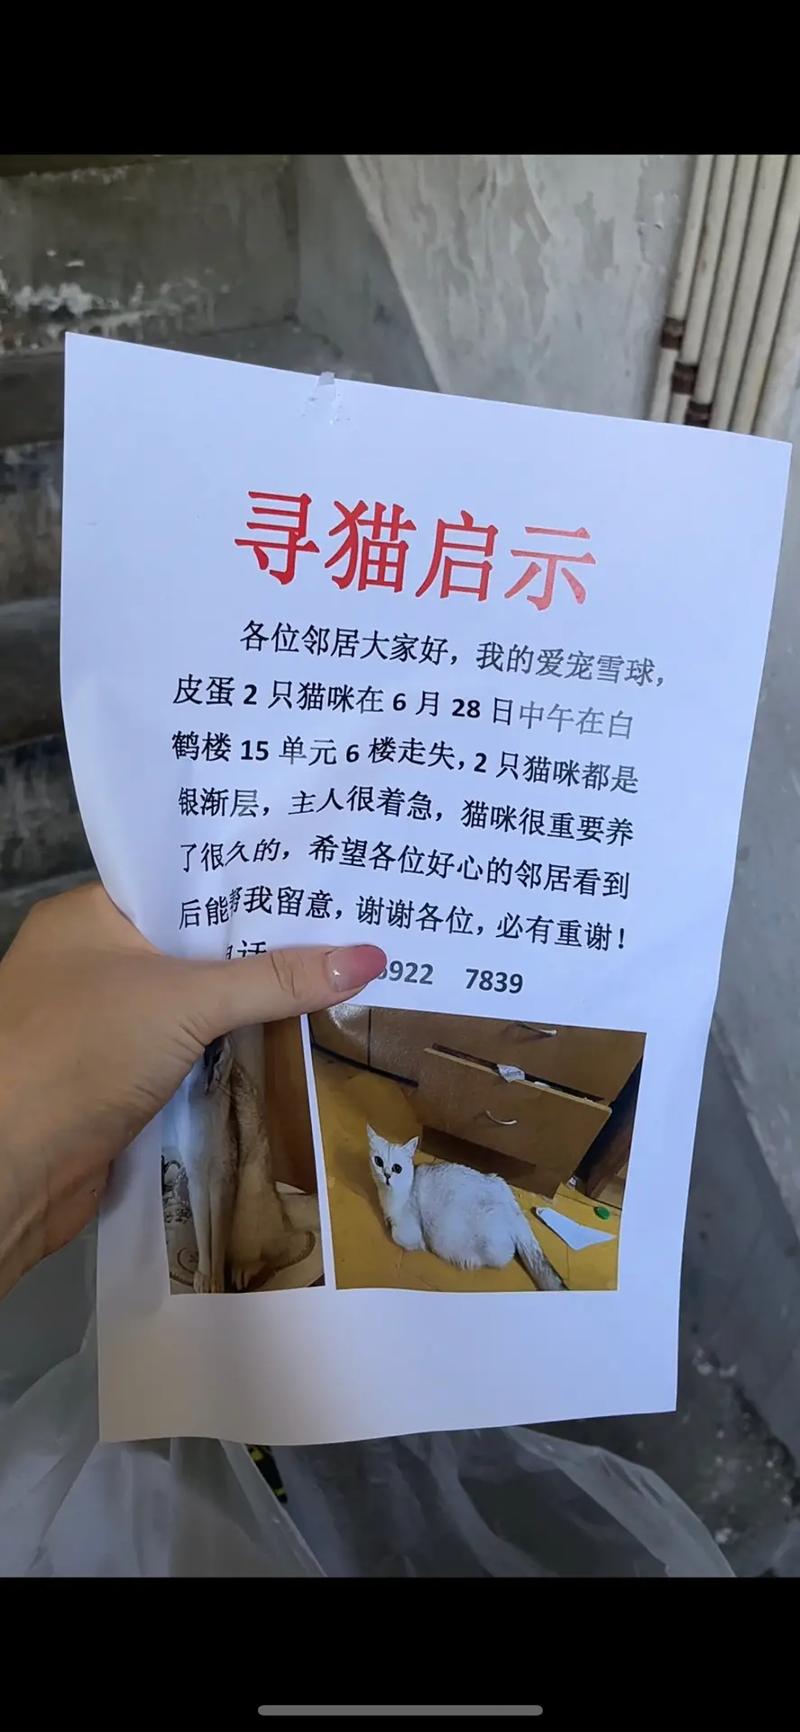 寻猫启示
各位邻居大家好，我的爱宠雪球，
皮蛋2只猫咪在6月28日中午在白
鹤楼15单元6楼走失，2只猫咪都是
银渐层，主人很着急，猫咪很重要养
了很久的，希望各位好心的邻居看到
后能帮我留意，谢谢各位，必有重谢！
话 6922 7839